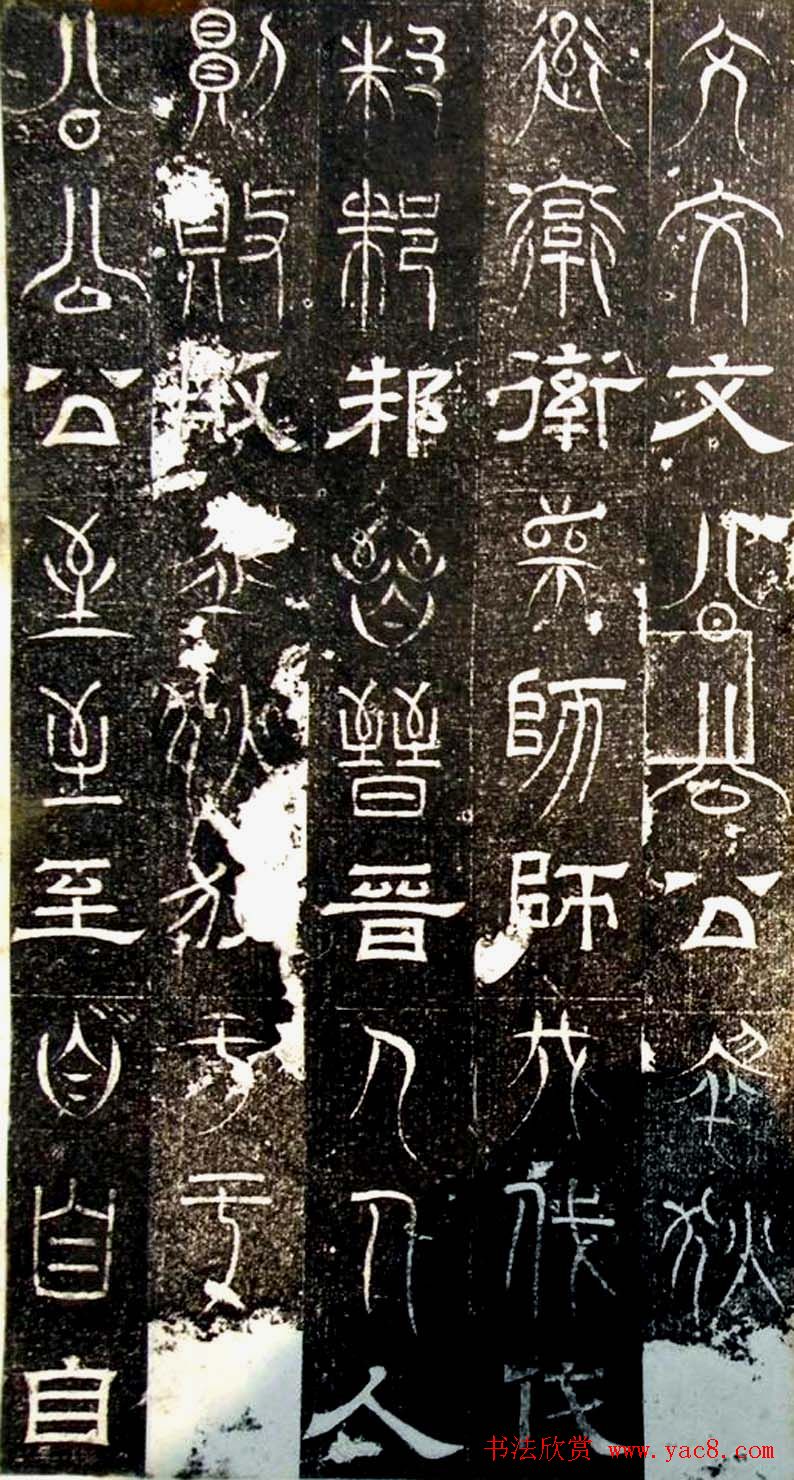 文文文公公公狄狄
衛衛衛師師師伐伐伐
邾邾邾晉晉晉人人人
敗敗敗狄狄狄于于
公公公至至至自自自
书法欣赏 www.yac8.com